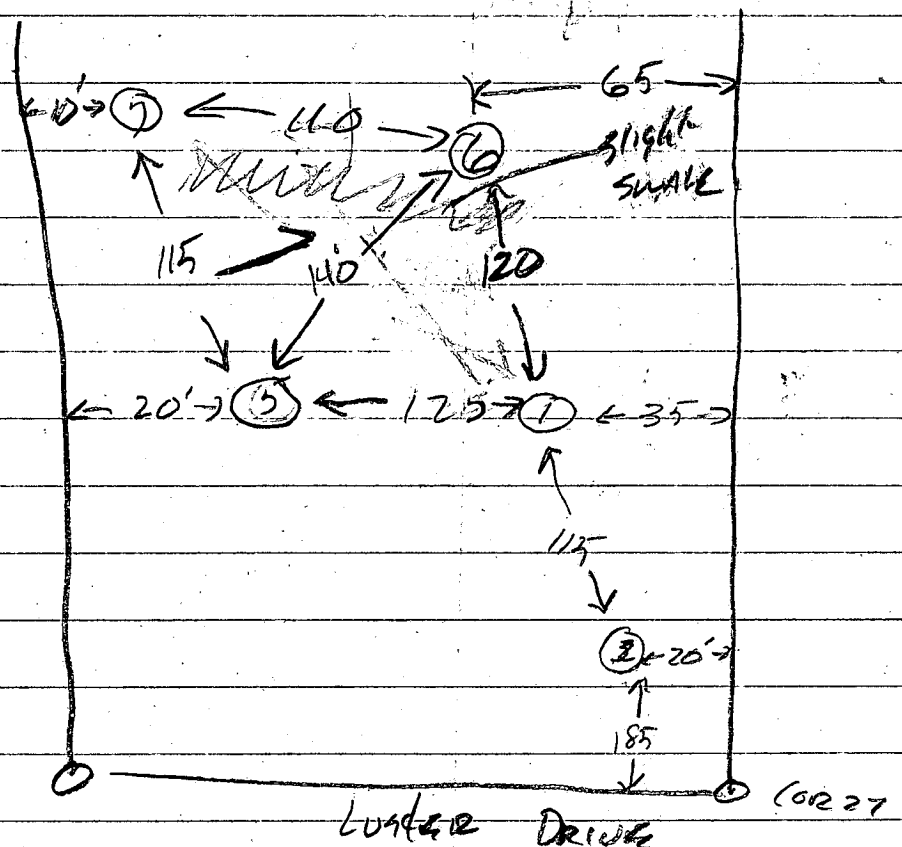 65
10' 7 110 6
slight
SWALE
115 140 120
20' 5 125 1 35
115
2 20'
185
COR 27
DRIVE